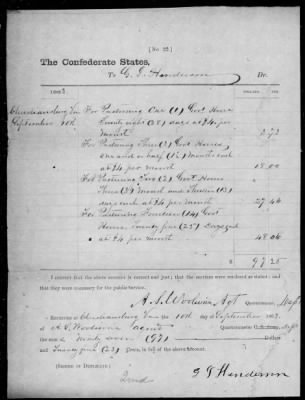 [No. 22.]
The Confederate States,
To G. T. Henderson Dr.
1863 DOLLARS.
Christiansburg Va For Pasturing One (1) Govt Horse
September 10th Twenty eight (28) days at $4 per
month 3.73
For Pasturing Three (3) Govt Horses
one and a half (1½) months each
at $4 per month 18.00
For Pasturing Two (2) Govt Horses
Three (3) Month and Thirteen (13)
days each at $4 per month 27.46
For Pasturing Fourteen (14) Govt
Horses twenty five (25) Days each
at $4 per month
97.25
I certify that the above account is correct and just; that the services were rendered as stated; and
that they were necessary for the public service.
A. A. Woodson Agt Quartermaster.
Received at Christiansburg Va the 10th of September 1863, of
A. A. Woodson agent Quartermaster C. S. Army,
the sum of ninety seven (97) Dollars
and Twenty five (25) Cents, in full of the above account.
(SIGNED IN DUPLICATE.)
G T Henderson